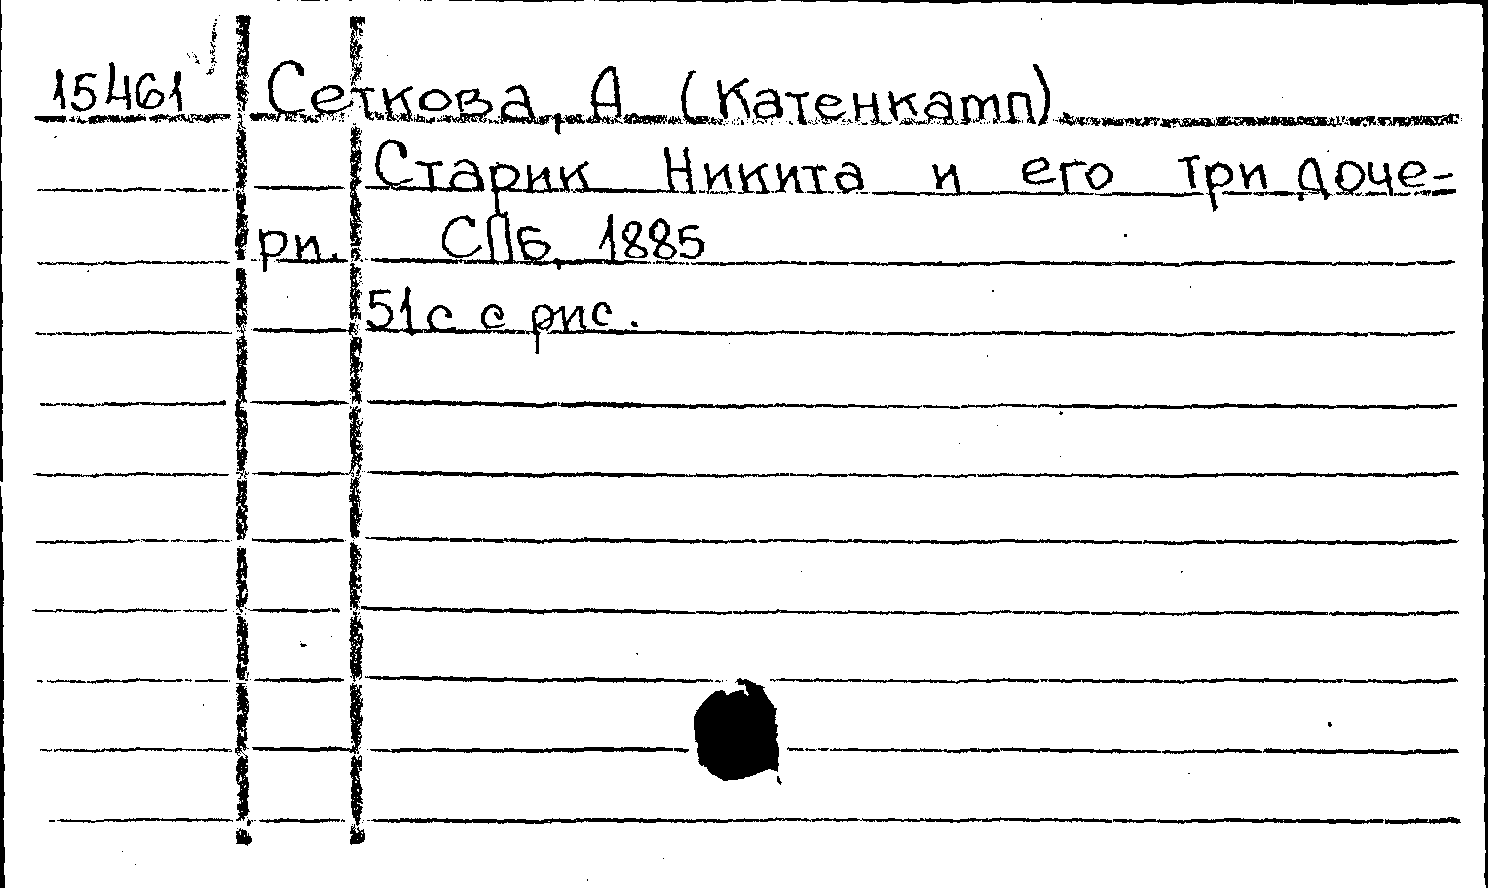 15461 Сеткова, А. (Катенкамп)
Старик Никита и его три доче-
ри. СПб, 1885
51с с рис.